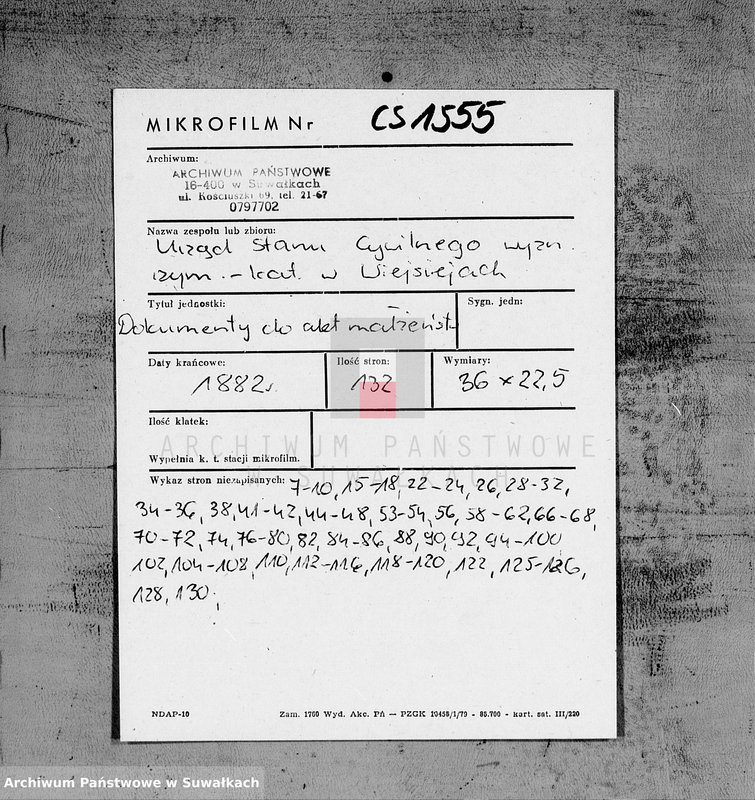 MIKROFILM Nr CS 1555
Archiwum:
ARCHIWUM PAŃSTWOWE
16-400 w Suwałkach
ul. Kościuszki 69, tel. 21-67
0797702
Nazwa zespołu lub zbioru:
Urząd Stanu Cywilnego wyzn.
rzym.-kat. w Wiejsiejach
Tytuł jednostki: Sygn. jedn:
Dokumenty do akt małżeńst.
Daty krańcowe: Ilość stron: Wymiary:
1882r. 132 36 x 22,5
Ilość klatek:
ARCHIWUM PAŃSTWOWE
W SUWAŁKACH
Wypełnia k. t. stacji mikrofilm.
Wykaz stron niezapisanych: 7-10, 15-18, 22-24, 26, 28-32,
34-36, 38, 41-42, 44-48, 53-54, 56, 58-62, 66-68,
70-72, 74, 76-80, 82, 84-86, 88, 90, 92, 94-100
102, 104-108, 110, 112-116, 118-120, 122, 125-126,
128, 130.
NDAP-10 Zam. 1760 Wyd. Akc. Pń — PZGK 19458/1/79 - 86.700 - kart. sat. III/220
Archiwum Państwowe w Suwałkach